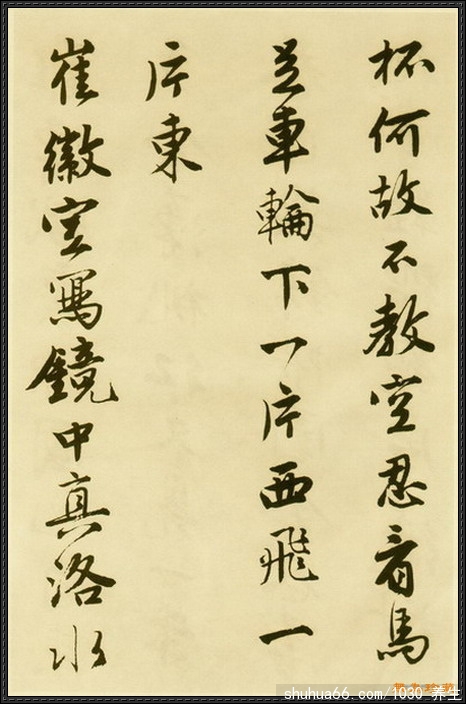 杯何故不教空忍看馬
足車輪下一片西飛一
片東
崔徽空寫鏡中真洛水
shuhua66.com/1030 养生